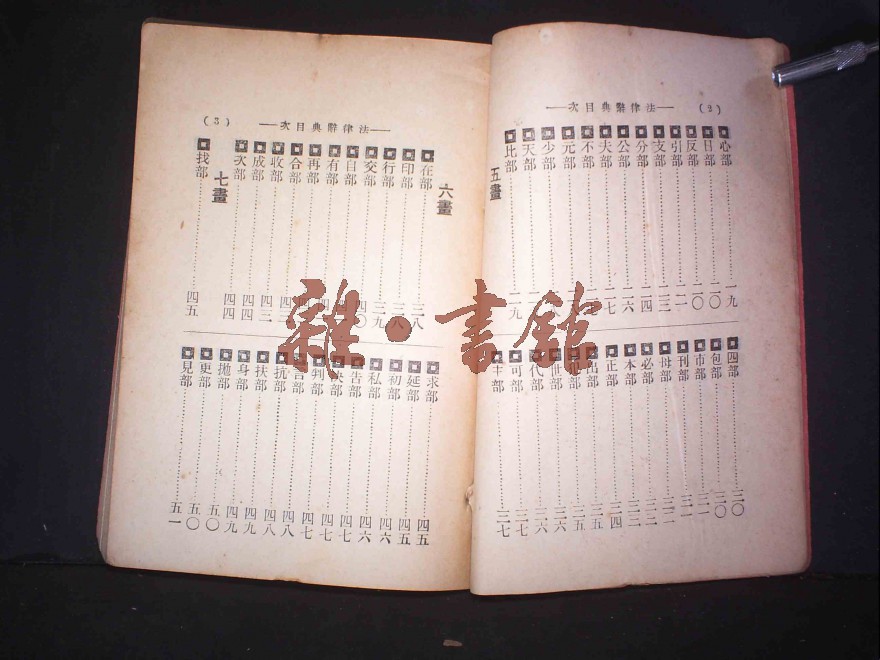 (2) —法律辭典目次—
心部 一九
日部 二〇
反部 二〇
引部 二一
支部 二三
分部 二四
公部 二六
夫部 二七
不部
元部
少部
天部
五畫
比部 二九
四部 三〇
包部 三〇
市部 三一
刊部 三一
母部 三二
必部 三二
本部 三三
正部 三四
出部 三五
部 三五
世部 三六
代部 三六
可部 三七
部 三七
(3) —法律辭典目次—
六畫
在部 三八
印部 三八
行部 三九
交部 四〇
自部
有部
再部
合部
收部 四三
成部 四四
次部 四四
七畫
找部 四五
求部 四五
延部 四五
初部 四六
私部 四六
告部 四七
決部 四七
判部 四七
部 四八
抗部 四八
扶部 四九
身部 四九
拋部 五〇
更部 五〇
見部 五一
雜·書館